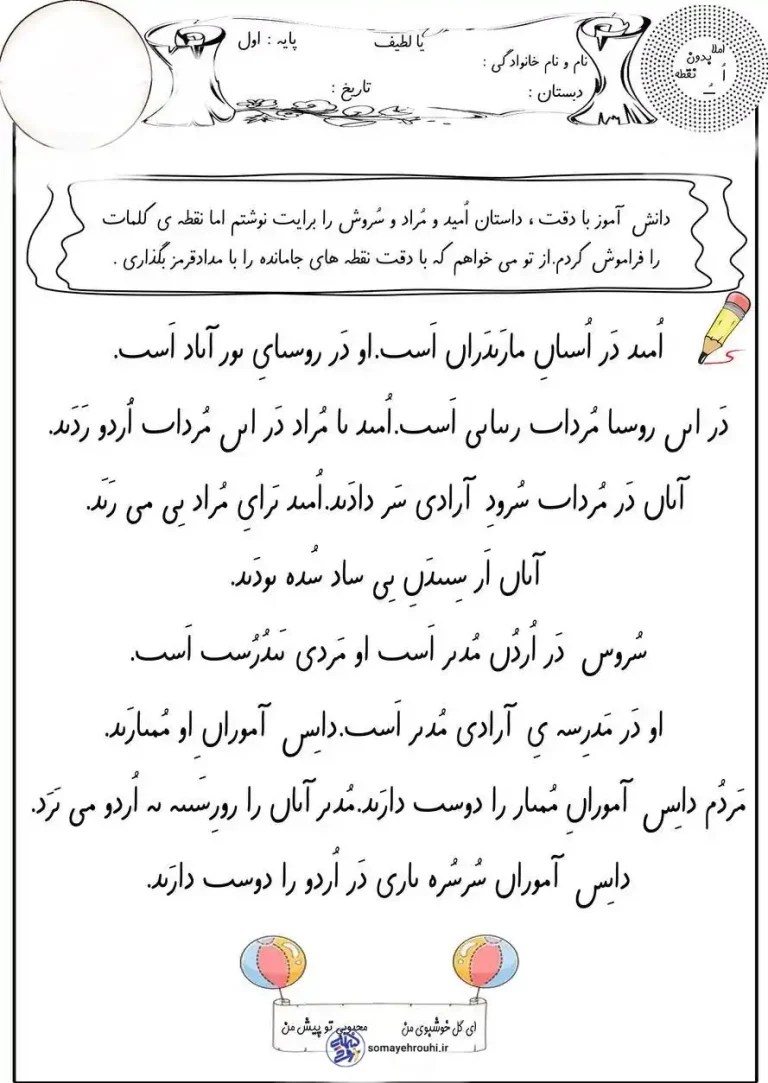 یا لطیف
پایه : اول
نام و نام خانوادگی :
تاریخ :
دبستان :
املا
بدون
نقطه
اُ ـُ
دانش آموز با دقت ، داستان اُمید و مُراد و سُروش را برایت نوشتم اما نقطه ی کلمات
را فراموش کردم.از تو می خواهم که با دقت نقطه های جامانده را با مدادقرمز بگذاری .
اُمٮد دَر اُسٮاںِ مارَٮدَراں اَسٮ.او دَر روسٮایِ ٮور آٮاد اَسٮ.
دَر اٮں روسٮا مُرداٮ رٮٮاٮی اَسٮ.اُمٮد ٮا مُراد دَر اٮں مُرداٮ اُردو رَدَٮد.
آٮاں دَر مُرداٮ سُرودِ آرادی سَر دادَٮد.اُمٮد ٮَرایِ مُراد ٮِی می رَٮَد.
آٮاں اَر سِٮٮدَںِ ٮِی ساد سُده ٮودَٮد.
سُروس دَر اُردُں مُدٮر اَسٮ او مَردی ٮَٮدُرُسٮ اَسٮ.
او دَر مَدرِسه یِ آرادی مُدٮر اَسٮ.داٮِس آموراںِ او مُمٮارَٮد.
مَردُم داٮِس آموراںِ مُمٮار را دوسٮ دارَٮد.مُدٮر آٮاں را رورِسَٮٮه ٮه اُردو می ٮَرَد.
داٮِس آموراں سُرسُره ٮاری دَر اُردو را دوسٮ دارَٮد.
ای گل خوشبوی من
محبوبی تو پیش من
somayehrouhi.ir